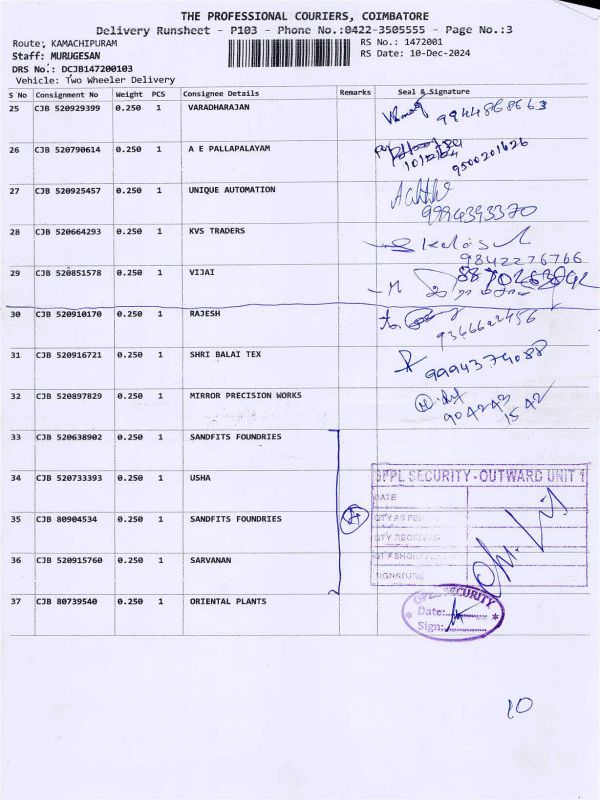 THE PROFESSIONAL COURIERS, COIMBATORE
Delivery Runsheet - P103 - Phone No.:0422-3505555 - Page No.:3
Route: KAMACHIPURAM
RS No.: 1472001
Staff: MURUGESAN
RS Date: 10-Dec-2024
DRS No.: DCJB147200103
Vehicle: Two Wheeler Delivery
S No Consignment No Weight PCS Consignee Details Remarks Seal & Signature
25 CJB 520929399 0.250 1 VARADHARAJAN
9944868663
26 CJB 520790614 0.250 1 A E PALLAPALAYAM
10/12/24
9500201626
27 CJB 520925457 0.250 1 UNIQUE AUTOMATION
9994393370
28 CJB 520664293 0.250 1 KVS TRADERS
9842276766
29 CJB 520851578 0.250 1 VIJAI
30 CJB 520910170 0.250 1 RAJESH
9366622456
31 CJB 520916721 0.250 1 SHRI BALAI TEX
9994374088
32 CJB 520897829 0.250 1 MIRROR PRECISION WORKS
904242
1542
33 CJB 520638902 0.250 1 SANDFITS FOUNDRIES
34 CJB 520733393 0.250 1 USHA
SFPL SECURITY - OUTWARD UNIT 1
DATE
35 CJB 80904534 0.250 1 SANDFITS FOUNDRIES
QTY RECEIVED
36 CJB 520915760 0.250 1 SARVANAN
SIGNATURE
37 CJB 80739540 0.250 1 ORIENTAL PLANTS
SECURITY
Date:
Sign:
10